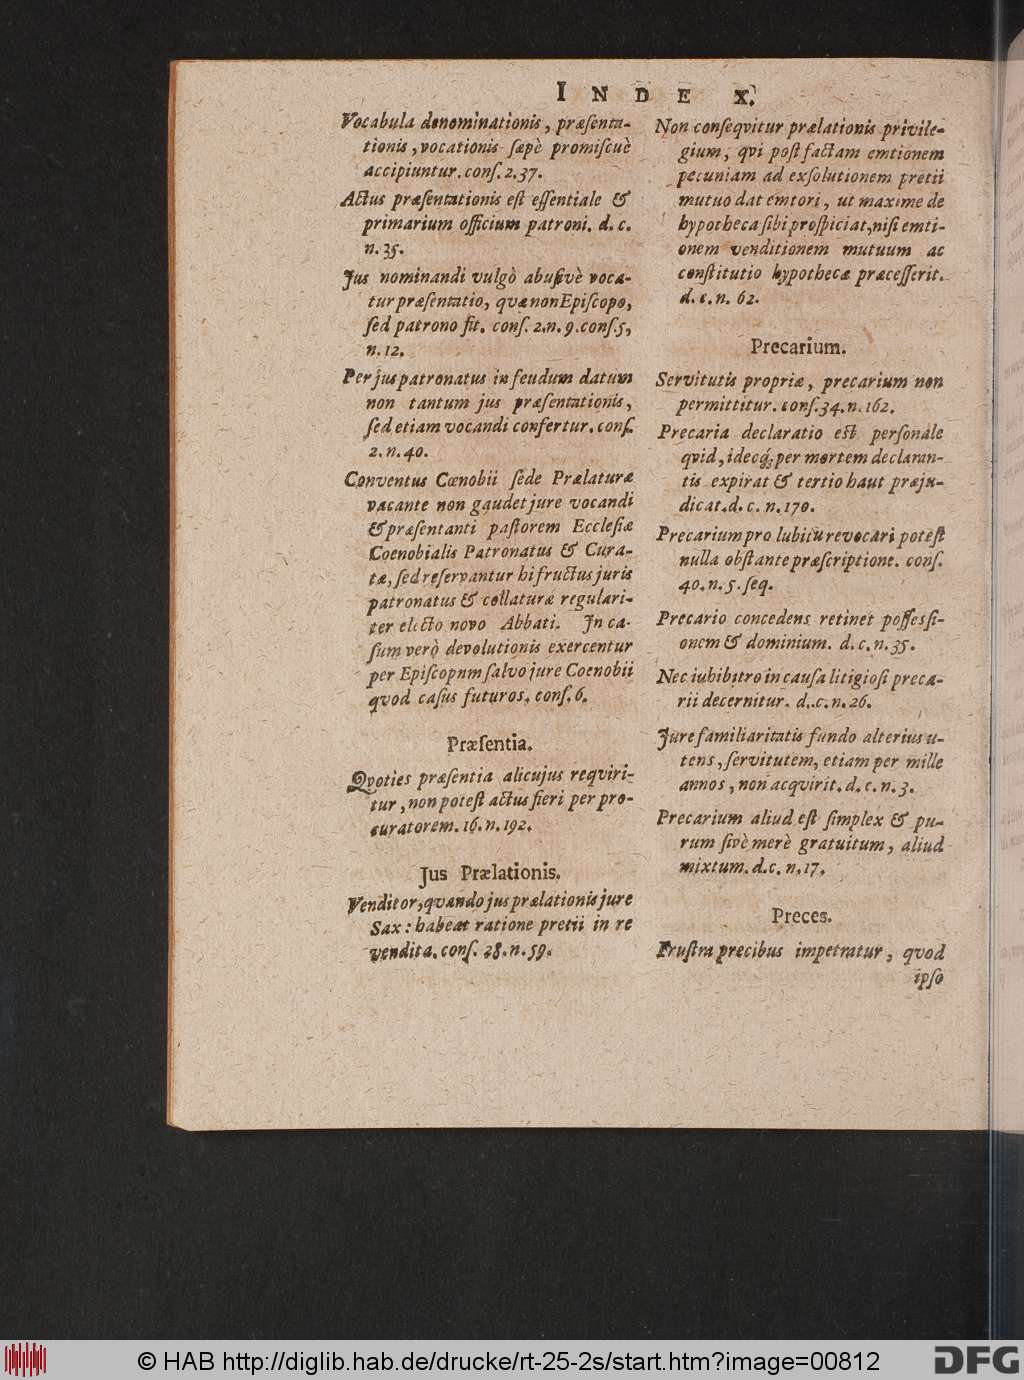 INDEX.
Vocabula denominationis, præſenta-
tionis, vocationis ſæpè promiſcuè
accipiuntur. conſ. 2. 37.
Actus præſentationis eſt eſſentiale &
primarium officium patroni. d. c.
n. 35.
Jus nominandi vulgò abuſivè voca-
tur præſentatio, quæ non Epiſcopo,
ſed patrono fit. conſ. 2. n. 9. conſ. 5,
n. 12.
Per jus patronatus in feudum datum
non tantum jus præſentationis,
ſed etiam vocandi confertur. conſ.
2. n. 40.
Conventus Cœnobii ſede Prælaturæ
vacante non gaudet jure vocandi
& præſentanti paſtorem Eccleſiæ
Coenobialis Patronatus & Cura-
tæ, ſed reſervantur hi fructus juris
patronatus & collaturæ regulari-
ter electo novo Abbati. In ca-
ſum verò devolutionis exercentur
per Epiſcopnm ſalvo jure Coenobii
qvod caſus futuros. conſ. 6.
Præſentia.
Qvoties præſentia alicujus reqviri-
tur, non poteſt actus fieri per pro-
curatorem. 16. n. 192.
Jus Prælationis.
Venditor, qvando jus prælationis jure
Sax: habeat ratione pretii in re
vendita. conſ. 28. n. 59.
Non conſeqvitur prælationis privile-
gium, qvi poſt factam emtionem
pecuniam ad exſolutionem pretii
mutuo dat emtori, ut maxime de
hypotheca ſibi proſpiciat, niſi emti-
onem venditionem mutuum ac
conſtitutio hypothecæ præceſſerit.
d. c. n. 62.
Precarium.
Servitutis propriæ, precarium non
permittitur. conſ. 34. n. 162.
Precaria declaratio eſt perſonale
qvid, ideoq́; per mortem declaran-
tis expirat & tertio haut præju-
dicat. d. c. n. 170.
Precarium pro lubitu revocari poteſt
nulla obſtante præſcriptione. conſ.
40. n. 5. ſeq.
Precario concedens retinet poſſeſſi-
onem & dominium. d. c. n. 35.
Nec iubibitro in cauſa litigioſi preca-
rii decernitur. d. c. n. 26.
Jure familiaritatis fundo alterius u-
tens, ſervitutem, etiam per mille
annos, non acqvirit. d. c. n. 3.
Precarium aliud eſt ſimplex & pu-
rum ſivè merè gratuitum, aliud
mixtum. d. c. n. 17.
Preces.
Fruſtra precibus impetratur, qvod
ipſo
© HAB http://diglib.hab.de/drucke/rt-25-2s/start.htm?image=00812
DFG